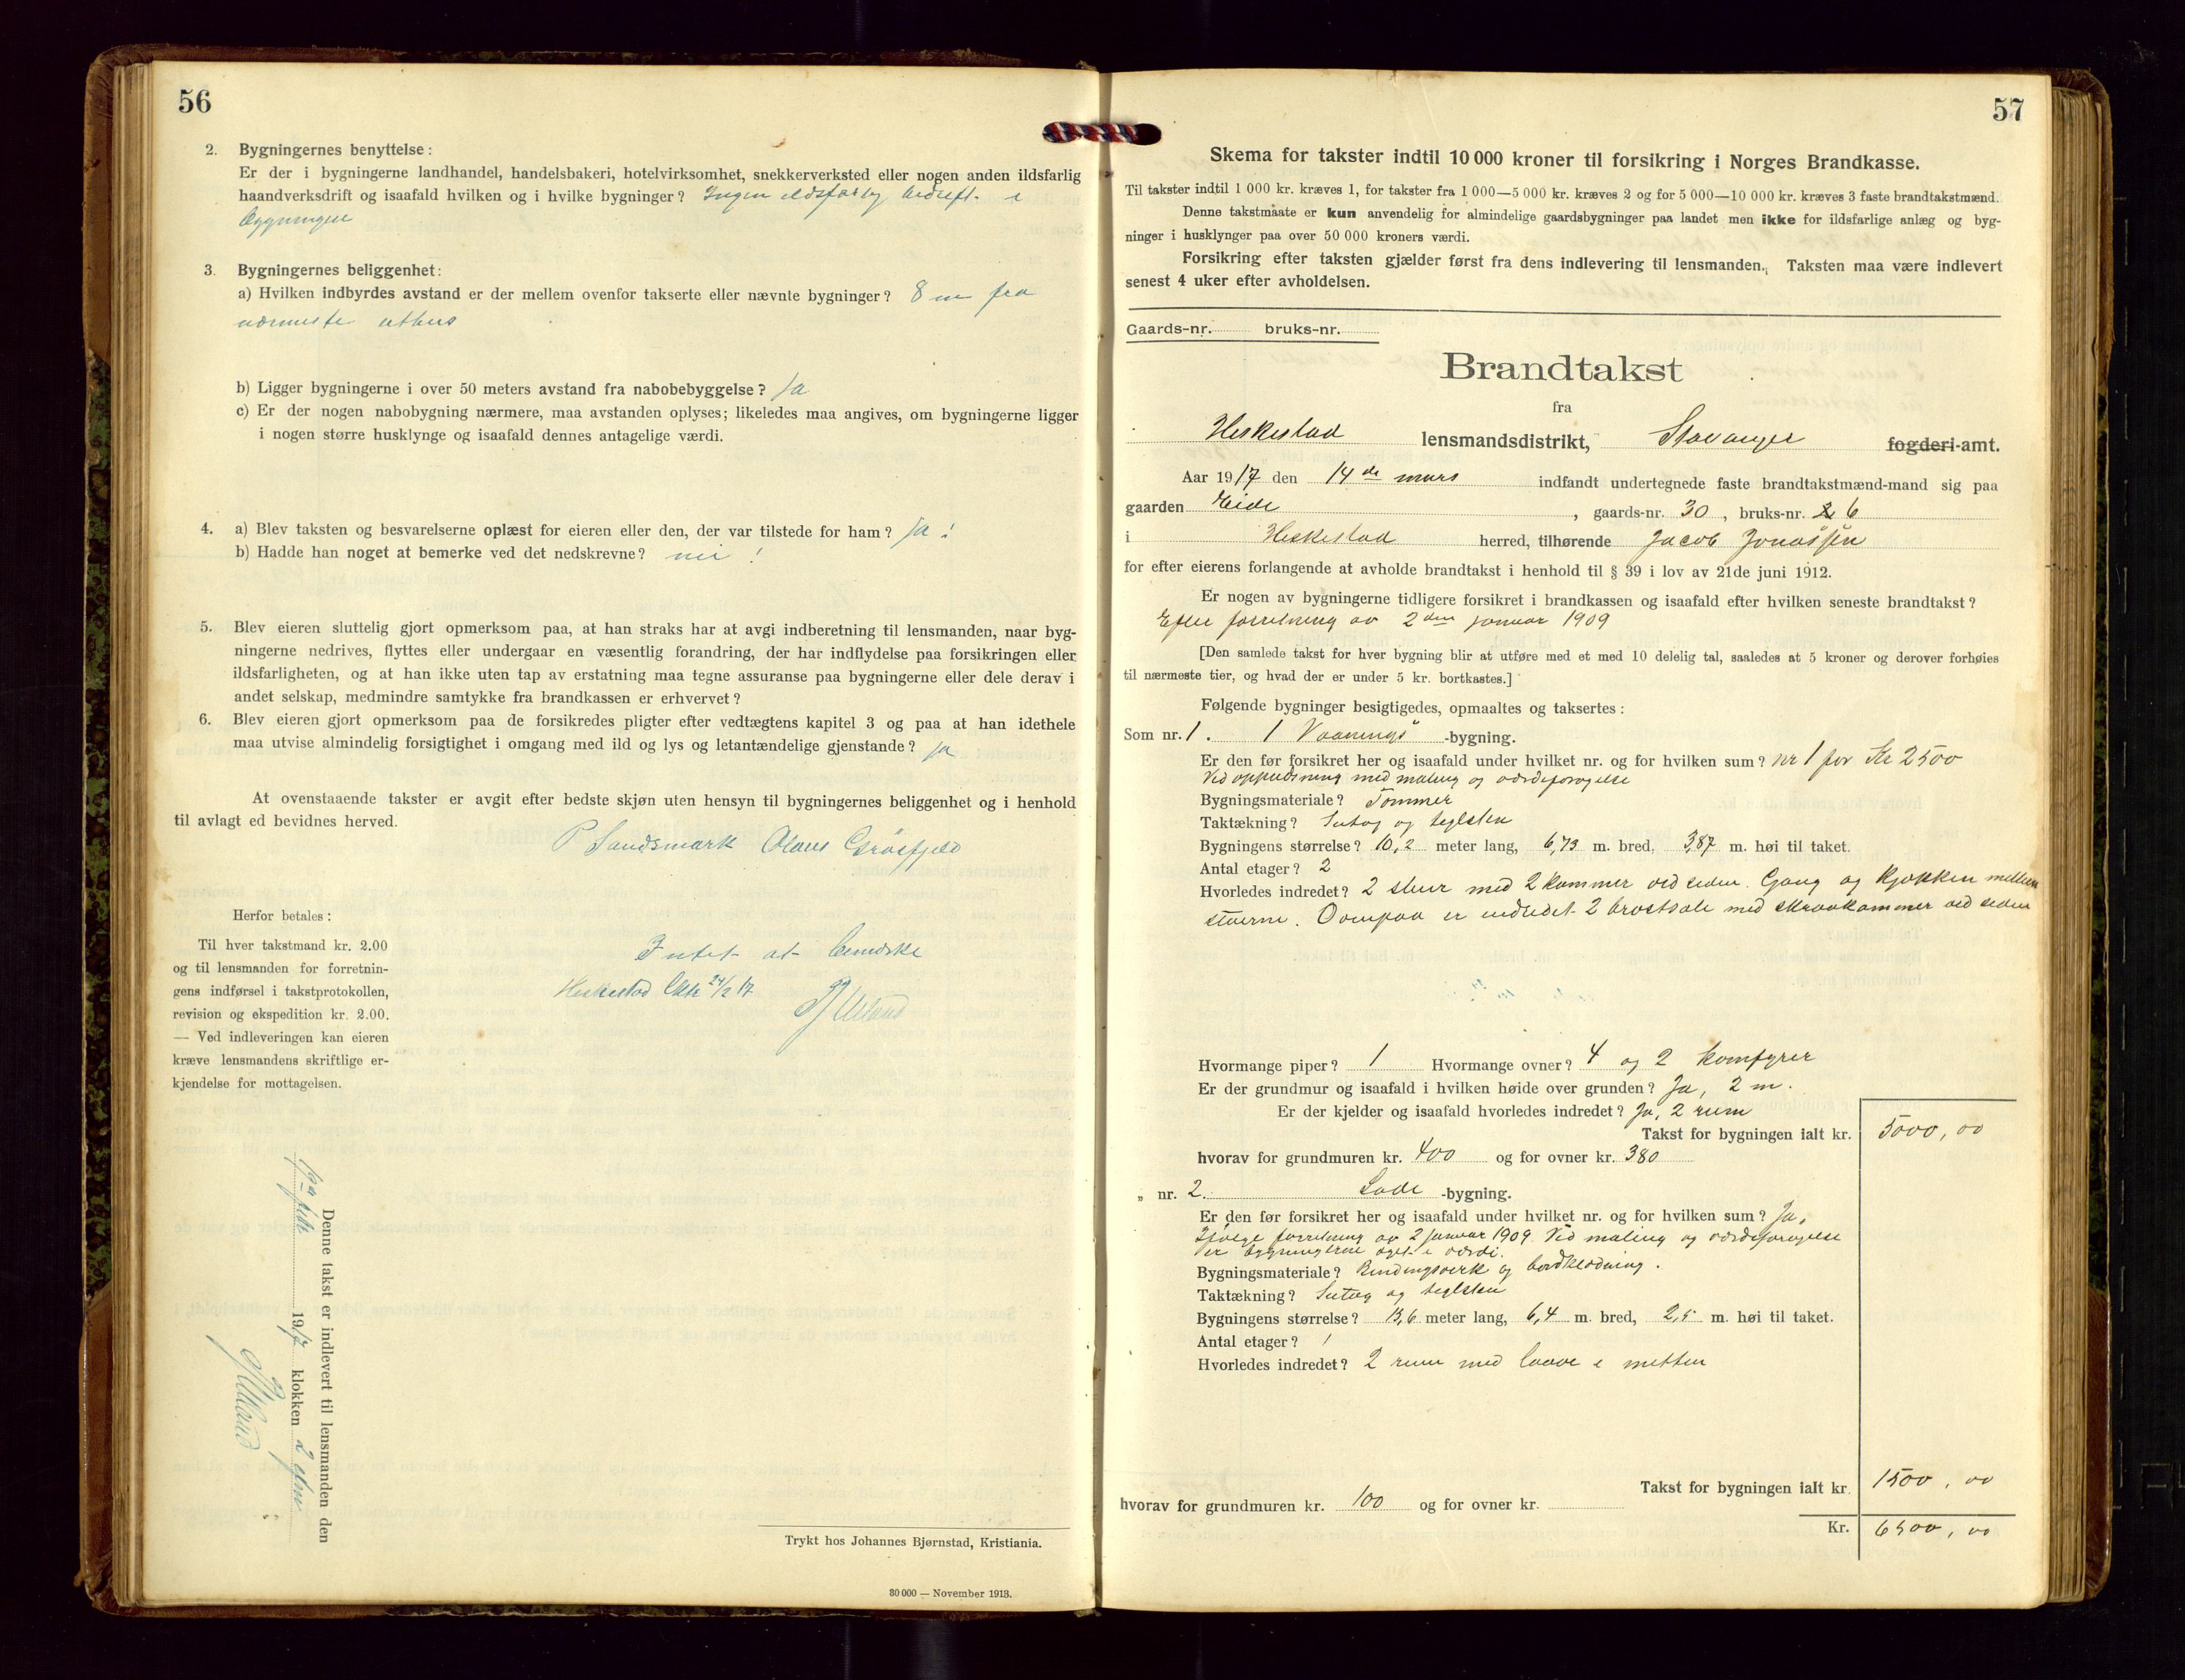 56
2. Bygningernes benyttelse:
Er der i bygningerne landhandel, handelsbakeri, hotelvirksomhet, snekkerverksted eller nogen anden ildsfarlig
haandverksdrift og isaafald hvilken og i hvilke bygninger? Ingen ildsfarlig bedrift i
bygningene
3. Bygningernes beliggenhet:
a) Hvilken indbyrdes avstand er der mellem ovenfor takserte eller nævnte bygninger? 8 m fra
nærmeste uthus
b) Ligger bygningerne i over 50 meters avstand fra nabobebyggelse? Ja
c) Er der nogen nabobygning nærmere, maa avstanden oplyses; likeledes maa angives, om bygningerne ligger
i nogen større husklynge og isaafald dennes antagelige værdi.
4. a) Blev taksten og besvarelserne oplæst for eieren eller den, der var tilstede for ham? Ja!
b) Hadde han noget at bemerke ved det nedskrevne? nei!
5. Blev eieren sluttelig gjort opmerksom paa, at han straks har at avgi indberetning til lensmanden, naar byg-
ningerne nedrives, flyttes eller undergaar en væsentlig forandring, der har indflydelse paa forsikringen eller
ildsfarligheten, og at han ikke uten tap av erstatning maa tegne assuranse paa bygningerne eller dele derav i
andet selskap, medmindre samtykke fra brandkassen er erhvervet?
6. Blev eieren gjort opmerksom paa de forsikredes pligter efter vedtægtens kapitel 3 og paa at han idethele
maa utvise almindelig forsigtighet i omgang med ild og lys og letantændelige gjenstande? ja
At ovenstaaende takster er avgit efter bedste skjøn uten hensyn til bygningernes beliggenhet og i henhold
til avlagt ed bevidnes herved.
P Sandsmark Olaus Gråsfjeld
Herfor betales:
Til hver takstmand kr. 2.00
og til lensmanden for forretnin-
gens indførsel i takstprotokollen,
revision og ekspedition kr. 2.00.
— Ved indleveringen kan eieren
kræve lensmandens skriftlige er-
kjendelse for mottagelsen.
Intet at bemærke
Heskestad 17
Denne takst er indlevert til lensmanden den
1917 klokken 2
Trykt hos Johannes Bjørnstad, Kristiania.
30 000 — November 1913.
57
Skema for takster indtil 10 000 kroner til forsikring i Norges Brandkasse.
Til takster indtil 1 000 kr. kræves 1, for takster fra 1 000—5 000 kr. kræves 2 og for 5 000—10 000 kr. kræves 3 faste brandtakstmænd.
Denne takstmaate er kun anvendelig for almindelige gaardsbygninger paa landet men ikke for ildsfarlige anlæg og byg-
ninger i husklynger paa over 50 000 kroners værdi.
Forsikring efter taksten gjælder først fra dens indlevering til lensmanden. Taksten maa være indlevert
senest 4 uker efter avholdelsen.
Gaards-nr. bruks-nr.
Brandtakst
fra
Heskestad lensmandsdistrikt, Stavanger fogderi-amt.
Aar 1917 den 14de mars indfandt undertegnede faste brandtakstmænd-mand sig paa
gaarden Eide, gaards-nr. 30, bruks-nr. 6
i Heskestad herred, tilhørende Jacob Jonassen
for efter eierens forlangende at avholde brandtakst i henhold til § 39 i lov av 21de juni 1912.
Er nogen av bygningerne tidligere forsikret i brandkassen og isaafald efter hvilken seneste brandtakst?
Efter forretning av 2den januar 1909
[Den samlede takst for hver bygning blir at utføre med et med 10 delelig tal, saaledes at 5 kroner og derover forhøies
til nærmeste tier, og hvad der er under 5 kr. bortkastes.]
Følgende bygninger besigtigedes, opmaaltes og taksertes:
Som nr. 1. 1 Vaanings-bygning.
Er den før forsikret her og isaafald under hvilket nr. og for hvilken sum? nr 1 for Kr 2500
Ved oppudsning med maling og værdiforøgelse
Bygningsmateriale? Tømmer
Taktækning? Sutag og teglsten
Bygningens størrelse? 10,2 meter lang, 6,73 m. bred, 3,87 m. høi til taket.
Antal etager? 2
Hvorledes indredet? 2 stuer med 2 kammer ved siden. Gang og kjøkken mellem
stuerne. Ovenpaa er indredet 2 brostsale med skraakammer ved siden
Hvormange piper? 1 Hvormange ovner? 4 og 2 komfyrer
Er der grundmur og isaafald i hvilken høide over grunden? Ja, 2 m.
Er der kjelder og isaafald hvorledes indredet? Ja, 2 rum
Takst for bygningen ialt kr. 5000,00
hvorav for grundmuren kr. 400 og for ovner kr. 380
„ nr. 2. Lade-bygning.
Er den før forsikret her og isaafald under hvilket nr. og for hvilken sum? Ja,
Ifølge forretning av 2 januar 1909. Ved maling og værdiforøgelse
er bygningerne øget i værdi.
Bygningsmateriale? Bindingsverk og bordklædning.
Taktækning? Sutag og teglsten
Bygningens størrelse? 13,6 meter lang, 6,4 m. bred, 2,5 m. høi til taket.
Antal etager? 1
Hvorledes indredet? 2 rum med laave i mitten
Takst for bygningen ialt kr. 1500,00
hvorav for grundmuren kr. 100 og for ovner kr.
Kr. 6500,00